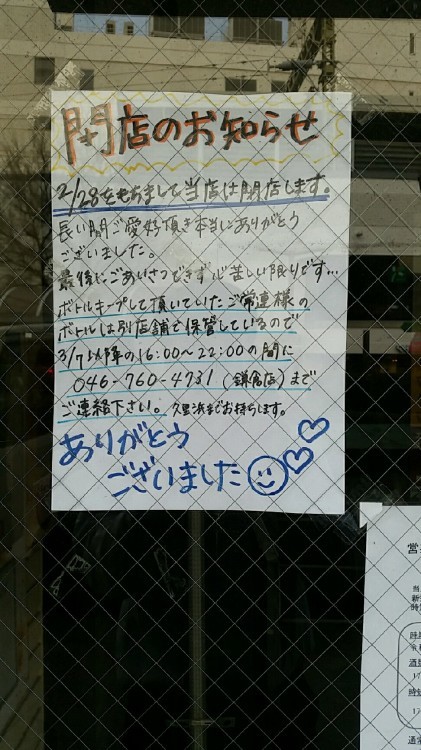 閉店のお知らせ
2/28をもちまして当店は閉店します。
長い間ご愛好頂き本当にありがとう
ございました。
最後にごあいさつできず心苦しい限りです…
ボトルキープして頂いていたご常連様の
ボトルは別店舗で保管しているので
3/7以降の16:00~22:00の間に
046-760-4731 (鎌倉店)まで
ご連絡下さい。久里浜までお持ちします。
ありがとう
ございました
営
当
新
時
酒
17
時
17
通常